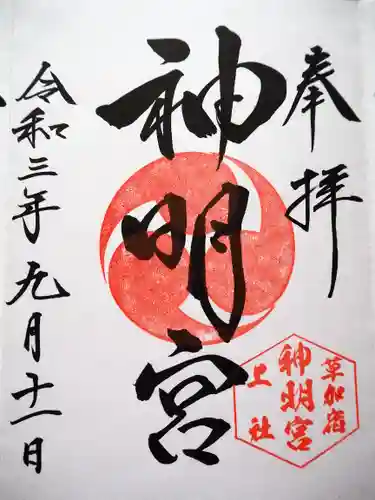 奉拝
神明宮
令和三年九月十一日
草加宿
神明宮
上社